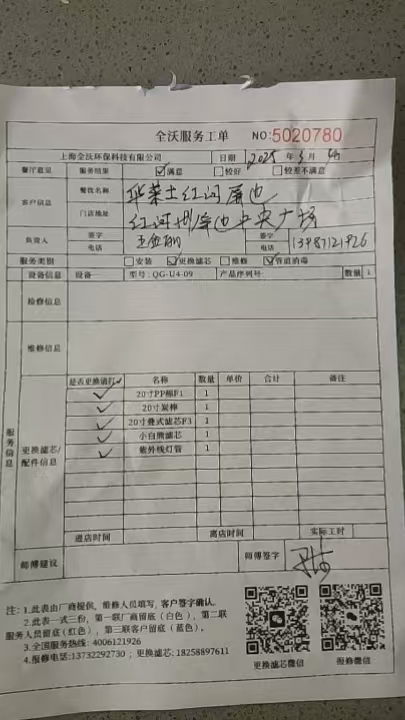 全沃服务工单 NO:5020780
上海全沃环保科技有限公司 日期 2025 年 3 月
餐厅意见 服务结果 ☑满意 □较好 □较差不满意
客户信息 餐饮名称 华莱士红河屏边
门店地址 红河州屏边中央广场
负责人 签字 签字
电话 电话 13987121926
服务类别 □安装 ☑更换滤芯 □维修 ☑管道消毒
设备信息 设备 型号:QG-U4-09 产品序列号: 数量 1
检修信息
维修信息
服务信息
更换滤芯/配件信息
是否更换请打✓ 名称 数量 单价 合计 备注
✓ 20寸PP棉F1 1
✓ 20寸炭棒 1
✓ 20寸叠式滤芯F3 1
✓ 小白熊滤芯 1
✓ 紫外线灯管 1
进店时间 离店时间 实际工时
师傅建议 师傅签字
注:1.此表由厂商提供,维修人员填写,客户签字确认.
2.此表一式三份,第一联厂商留底(白色),第二联
服务人员留底(红色),第三联客户留底(蓝色)。
3.全国服务热线:4006121926
4.报修电话:13732292730;更换滤芯:18258897611
更换滤芯微信 报修微信